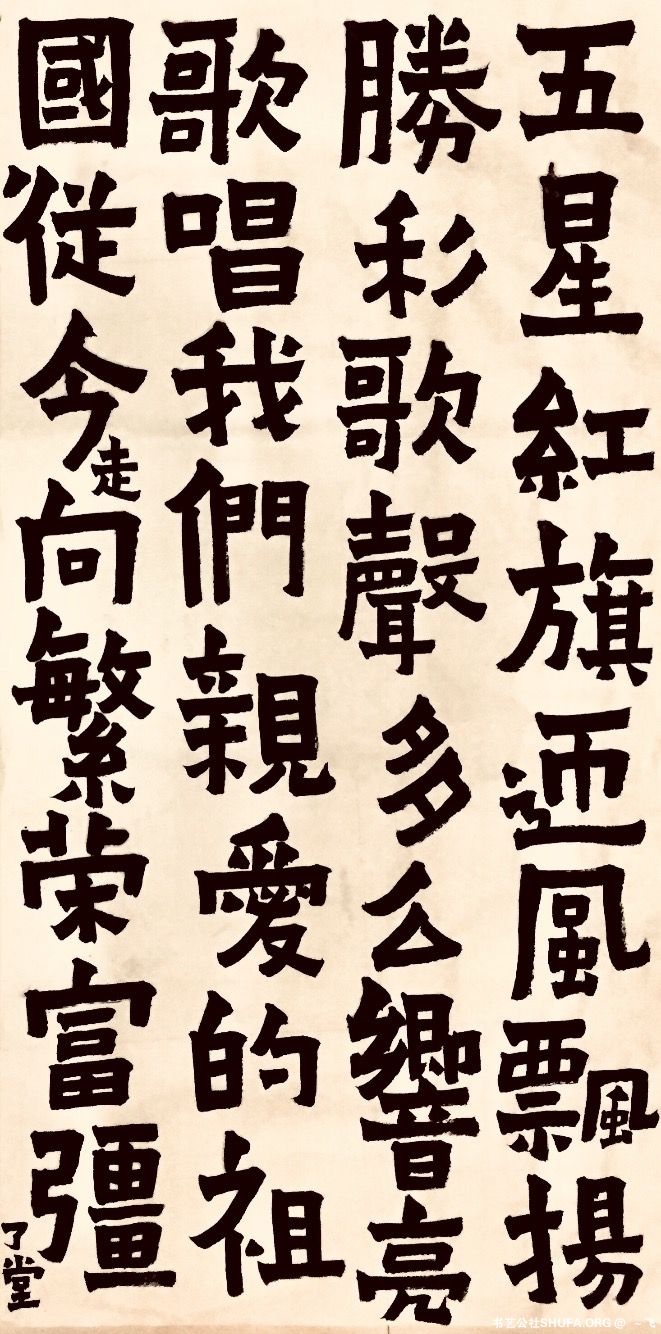 五星紅旗迊風飄揚
勝利歌聲多么響亮
歌唱我們親愛的祖
國従今走向繁荣富彊
了堂
书艺公社SHUFA.ORG @ ~飞